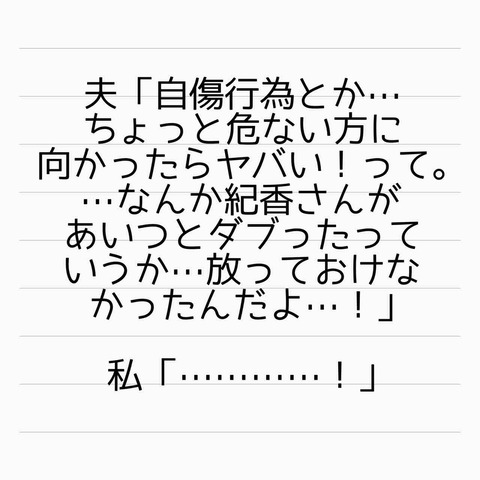 夫「自傷行為とか…
ちょっと危ない方に
向かったらヤバい！って。
…なんか紀香さんが
あいつとダブったって
いうか…放っておけな
かったんだよ…！」
私「…………！」